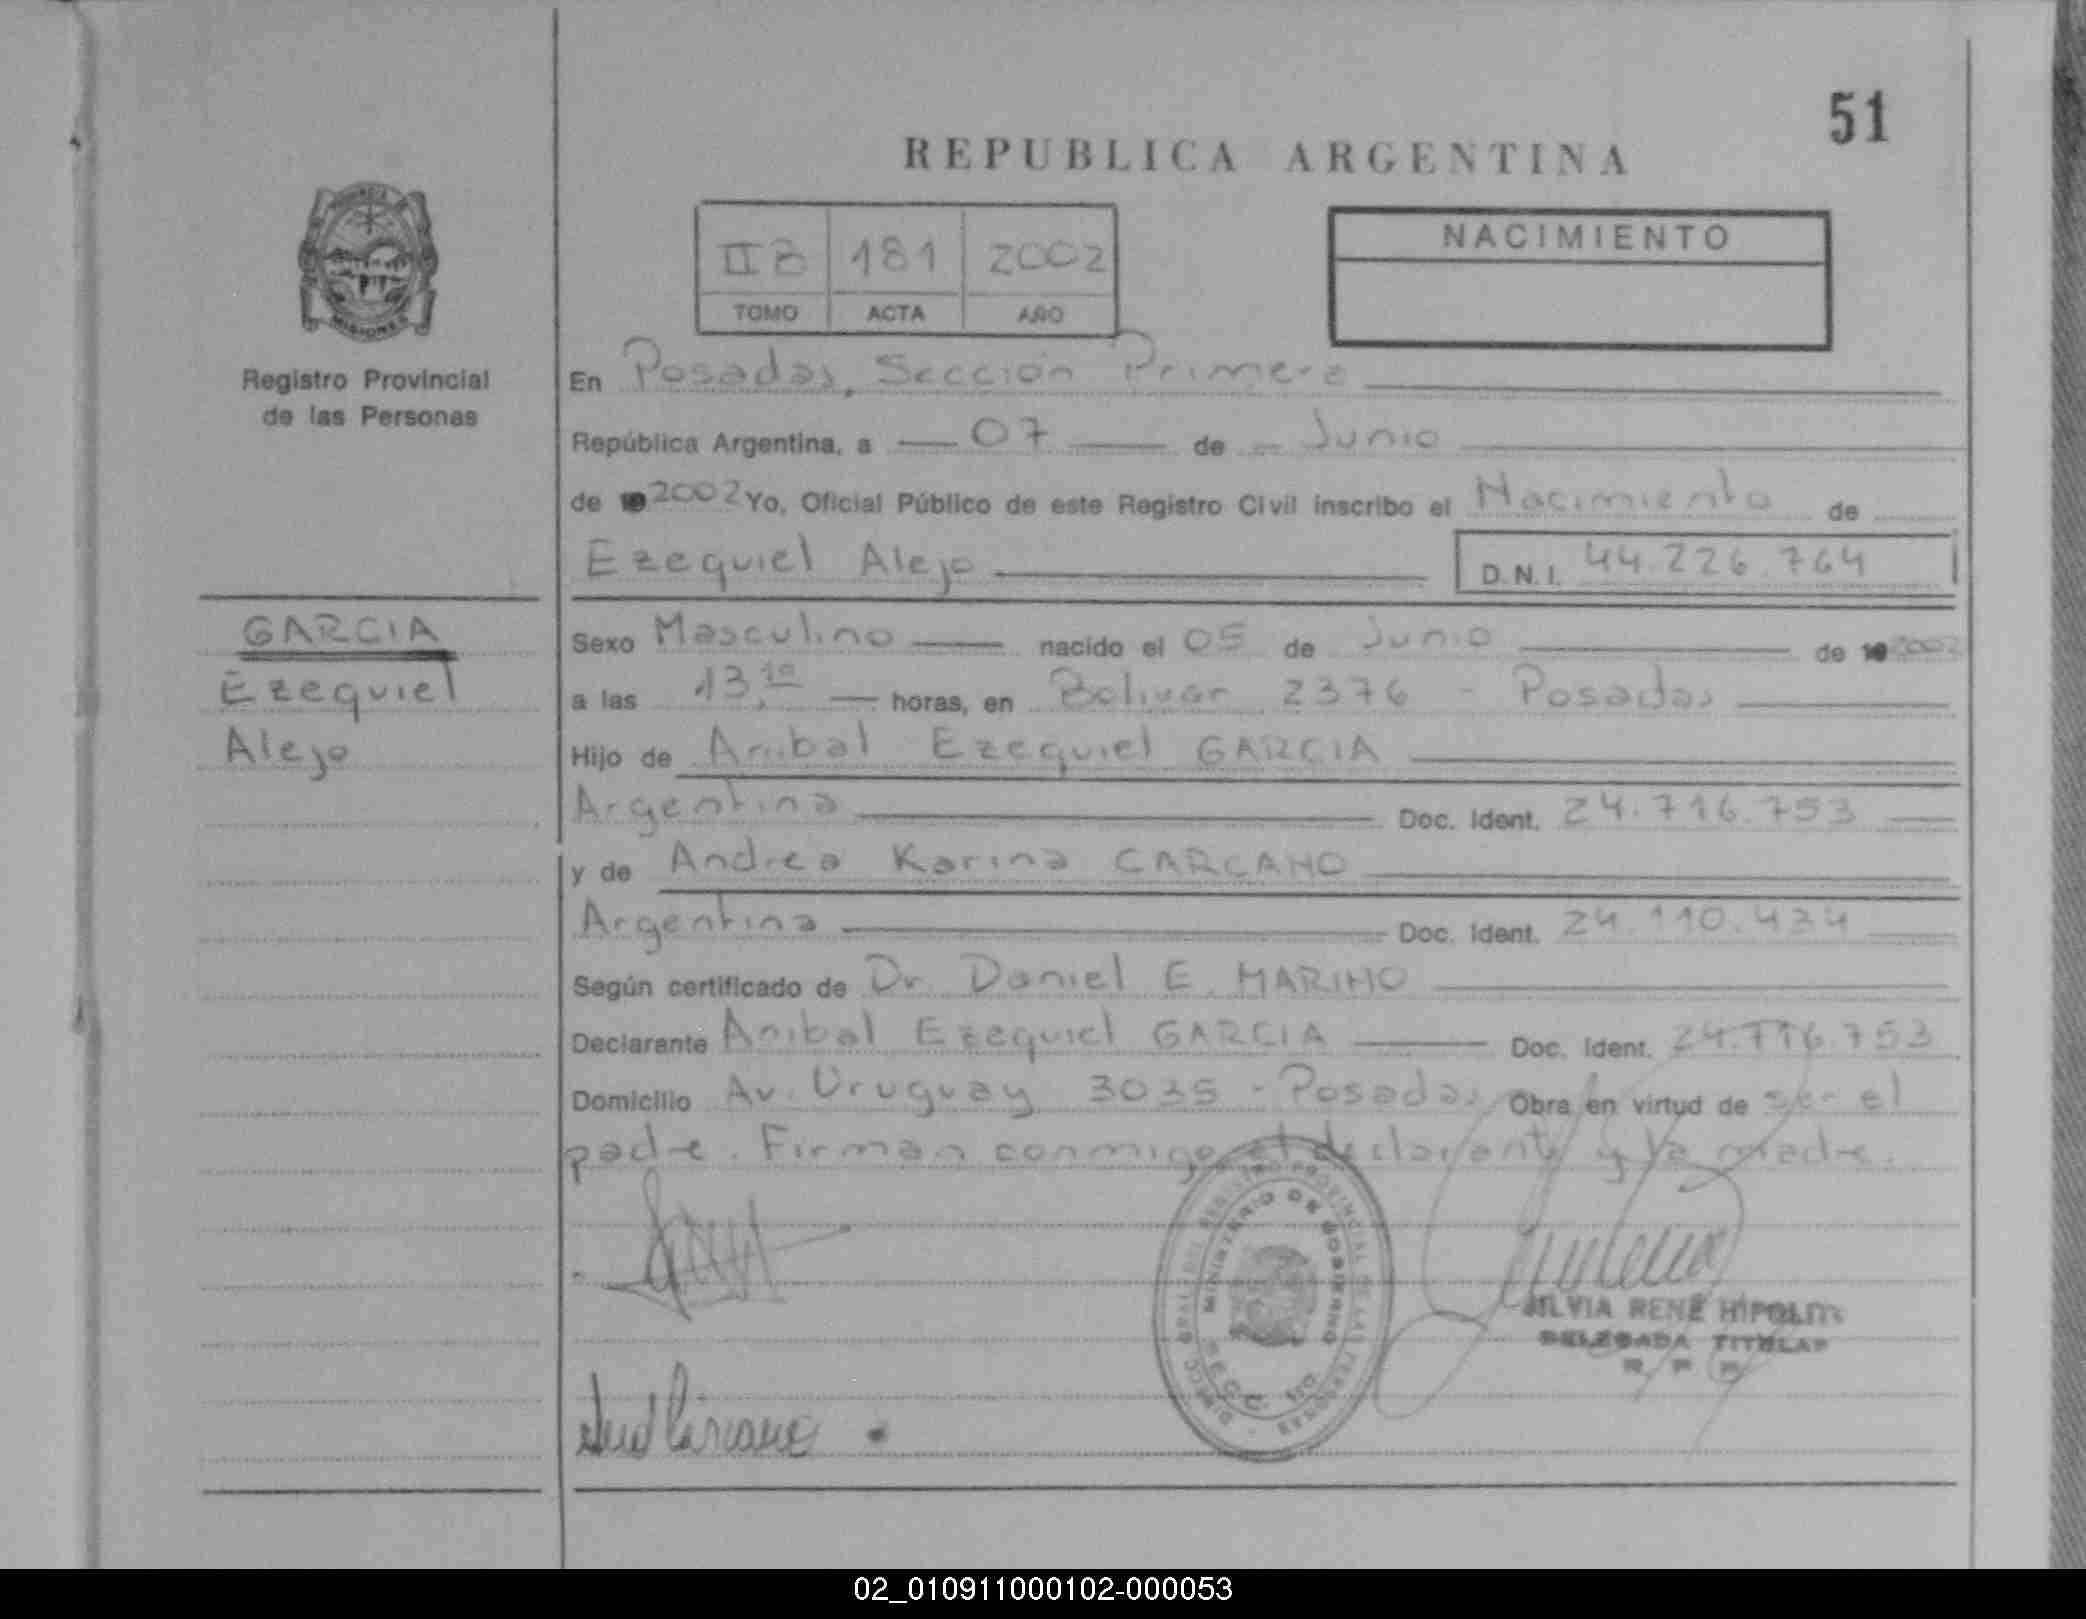 51
REPUBLICA ARGENTINA
IIB 181 2002
TOMO ACTA AÑO
NACIMIENTO
MISIONES
Registro Provincial
de las Personas
En Posadas, Sección Primera
República Argentina, a 07 de Junio
de 19 2002 Yo, Oficial Público de este Registro Civil inscribo el Nacimiento de
Ezequiel Alejo D.N.I. 44.226.764
GARCIA
Ezequiel
Alejo
Sexo Masculino nacido el 05 de Junio de 19 2002
a las 13,10 horas, en Bolivar 2376 - Posadas
Hijo de Anibal Ezequiel GARCIA
Argentina Doc. Ident. 24.716.753
y de Andrea Karina CARCANO
Argentina Doc. Ident. 24.110.434
Según certificado de Dr. Daniel E. MARINO
Declarante Anibal Ezequiel GARCIA Doc. Ident. 24.716.753
Domicilio Av. Uruguay 3035 - Posadas Obra en virtud de ser el
padre. Firman conmigo el declarante y la madre.
MINISTERIO DE GOBIERNO
SILVIA RENÉ HIPOLITO
DELEGADA TITULAR
R P P
02_010911000102-000053